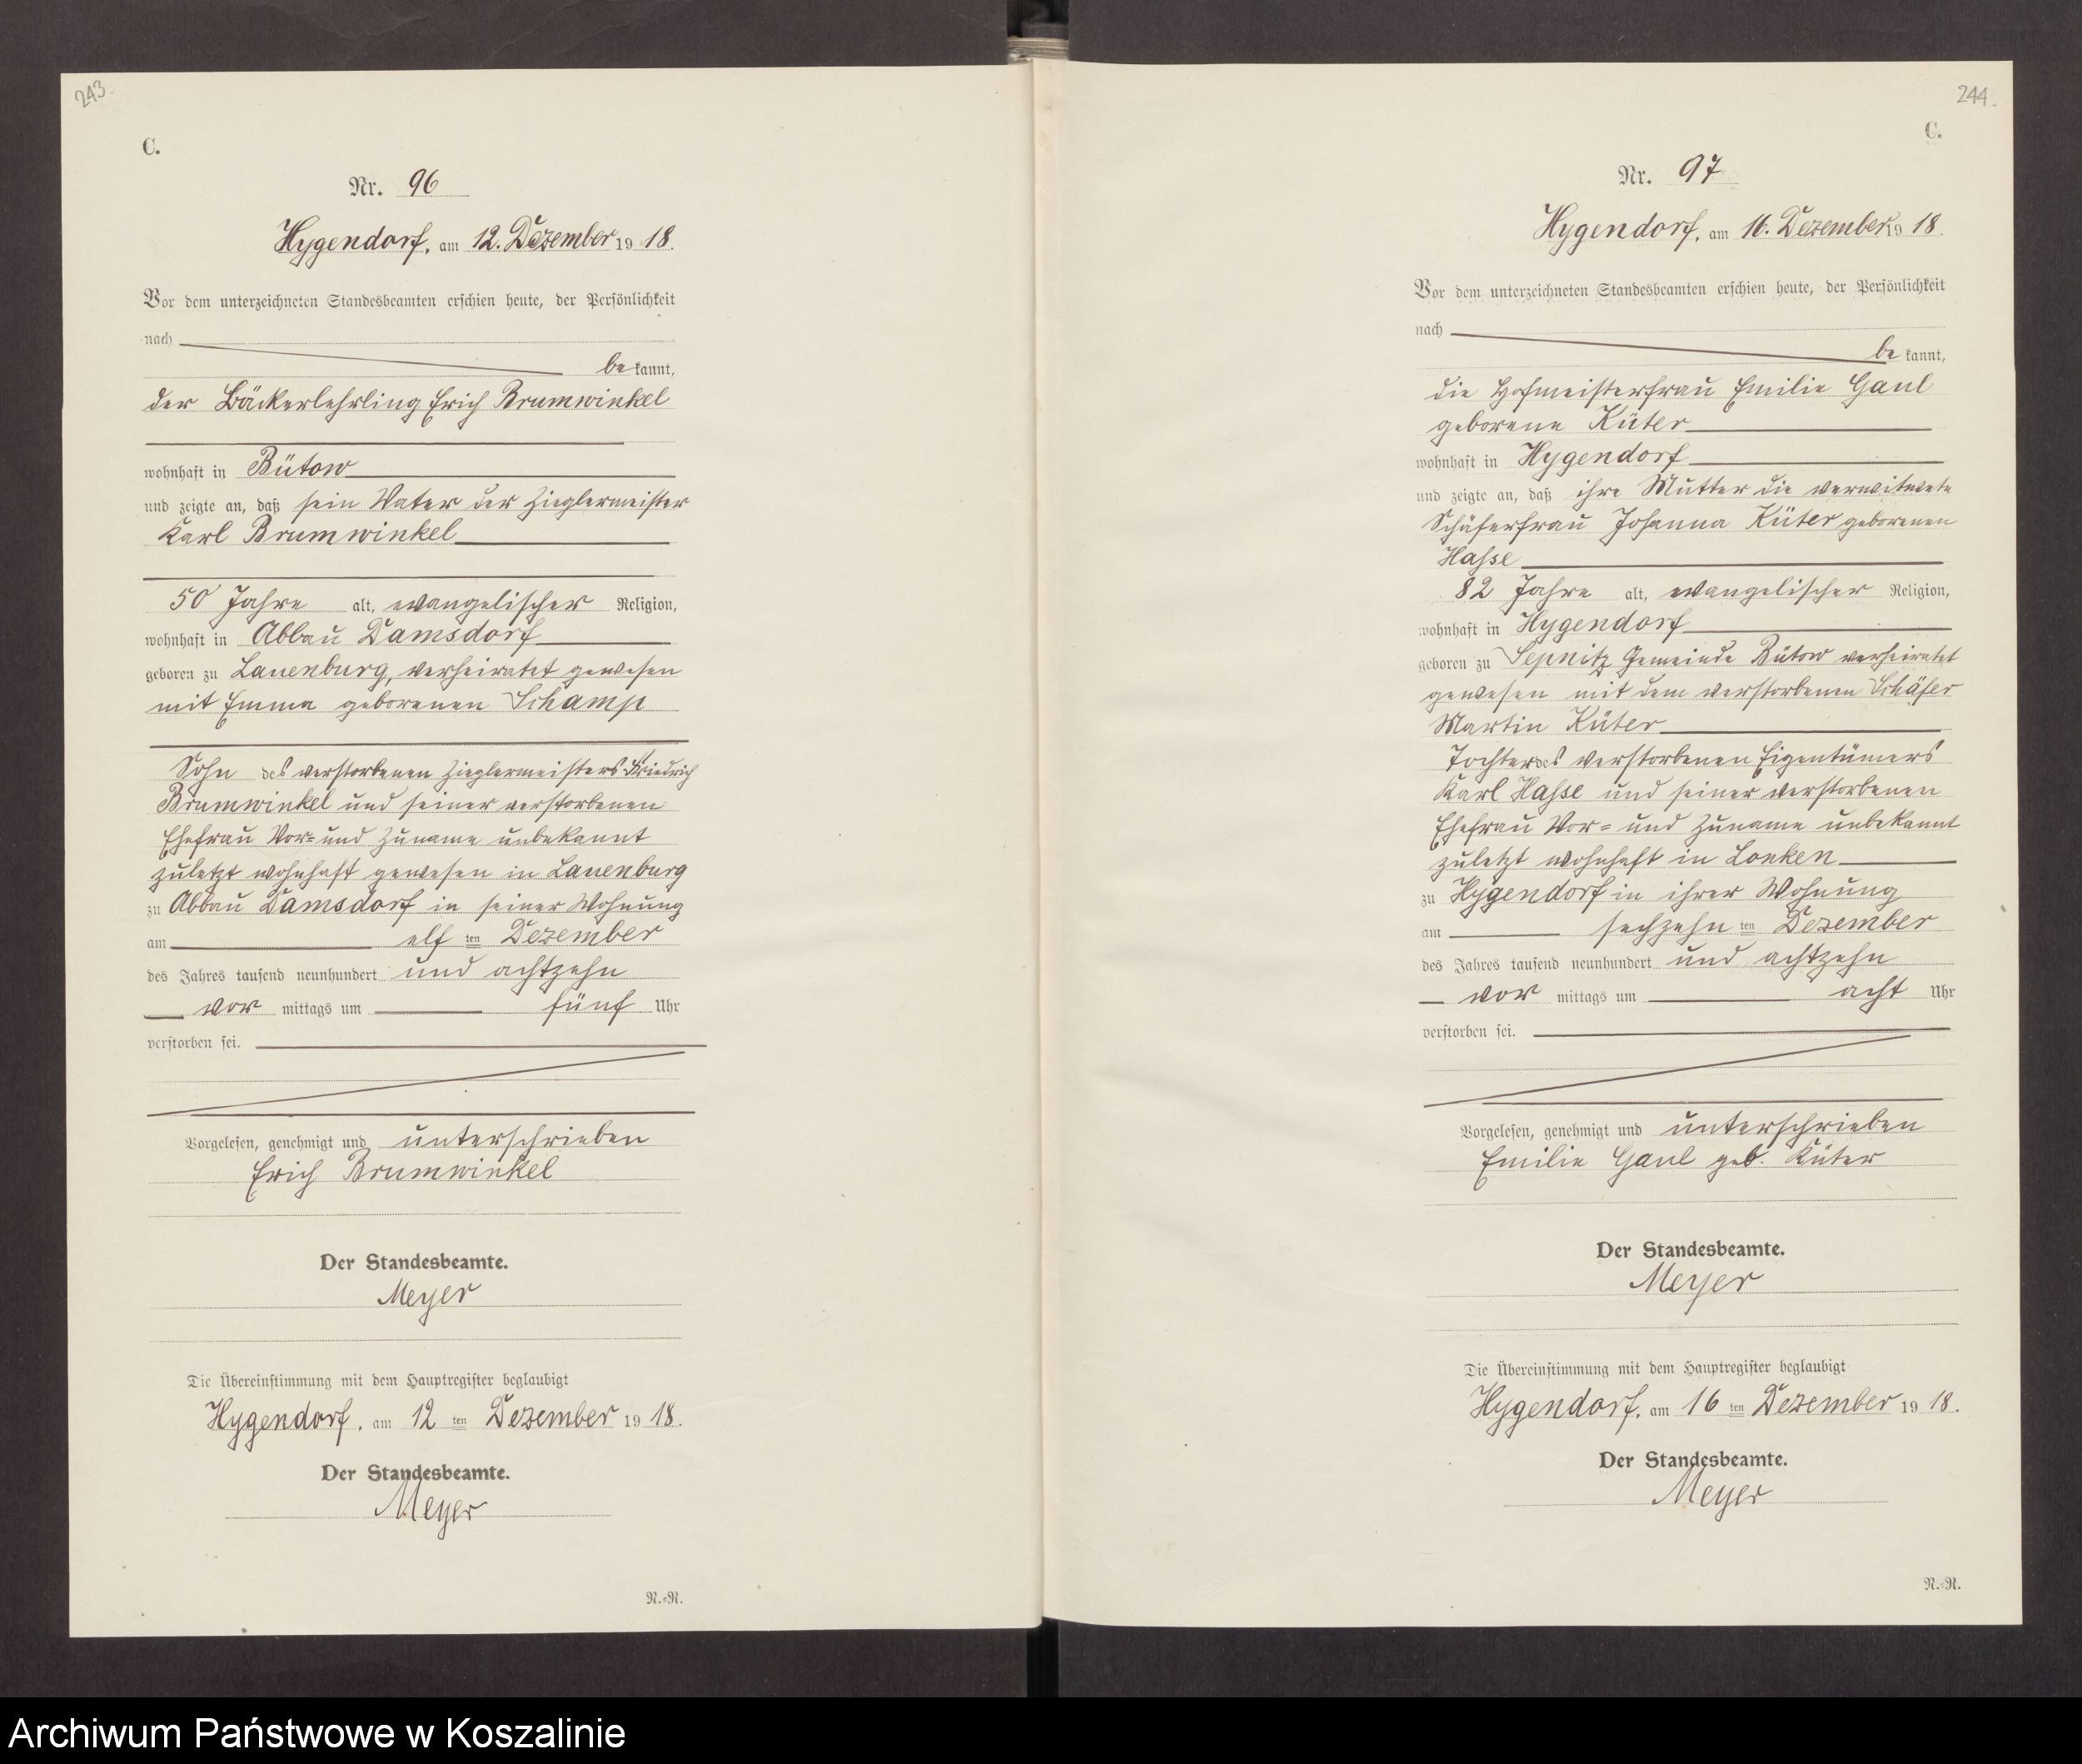 243.
C.
Nr. 96
Hygendorf, am 12. Dezember 1918.
Vor dem unterzeichneten Standesbeamten erschien heute, der Persönlichkeit
nach
be kannt,
der Bäckerlehrling Erich Brumwinkel
wohnhaft in Bütow
und zeigte an, daß sein Vater der Zieglermeister
Karl Brumwinkel
50 Jahre alt, evangelischer Religion,
wohnhaft in Abbau Damsdorf
geboren zu Lauenburg, verheiratet gewesen
mit Emma geborenen Schamp
Sohn des verstorbenen Zieglermeisters Friedrich
Brumwinkel und seiner verstorbenen
Ehefrau Vor= und Zuname unbekannt
zuletzt wohnhaft gewesen in Lauenburg
zu Abbau Damsdorf in seiner Wohnung
am elf ten Dezember
des Jahres tausend neunhundert und achtzehn
vor mittags um fünf Uhr
verstorben sei.
Vorgelesen, genehmigt und unterschrieben
Erich Brumwinkel
Der Standesbeamte.
Meyer
Die Übereinstimmung mit dem Hauptregister beglaubigt
Hygendorf, am 12 ten Dezember 1918.
Der Standesbeamte.
Meyer
N.=N.
244.
C.
Nr. 97
Hygendorf, am 16. Dezember 1918.
Vor dem unterzeichneten Standesbeamten erschien heute, der Persönlichkeit
nach
be kannt,
die Hofmeisterfrau Emilie Gaul
geborene Küter
wohnhaft in Hygendorf
und zeigte an, daß ihre Mutter die verwitwete
Schäferfrau Johanna Küter geborenen
Hasse
82 Jahre alt, evangelischer Religion,
wohnhaft in Hygendorf
geboren zu Sepnitz Gemeinde Bütow verheiratet
gewesen mit dem verstorbenen Schäfer
Martin Küter
Tochter des verstorbenen Eigentümers
Karl Hasse und seiner verstorbenen
Ehefrau Vor= und Zuname unbekannt
zuletzt wohnhaft in Lonken
zu Hygendorf in ihrer Wohnung
am sechzehn ten Dezember
des Jahres tausend neunhundert und achtzehn
vor mittags um acht Uhr
verstorben sei.
Vorgelesen, genehmigt und unterschrieben
Emilie Gaul geb. Küter
Der Standesbeamte.
Meyer
Die Übereinstimmung mit dem Hauptregister beglaubigt
Hygendorf, am 16 ten Dezember 1918.
Der Standesbeamte.
Meyer
N.=N.
Archiwum Państwowe w Koszalinie